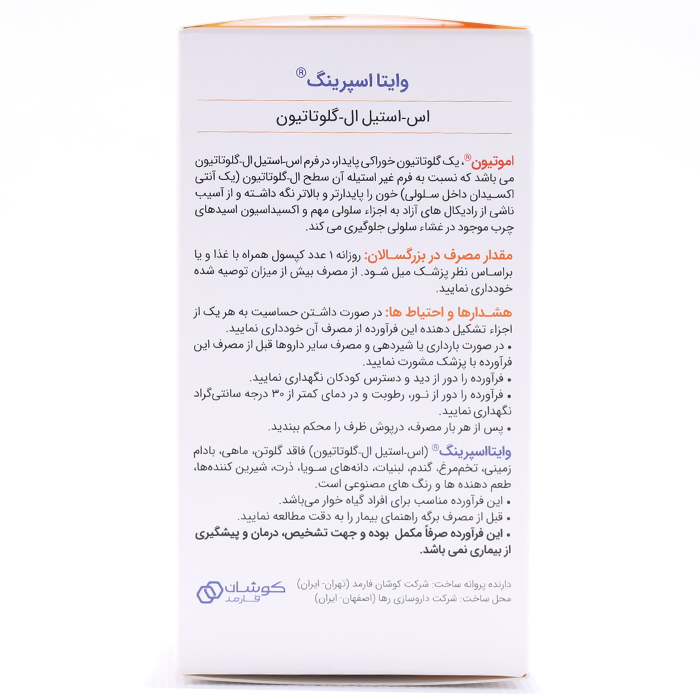 وایتا اسپرینگ®
اس-استیل ال-گلوتاتیون
اموتیون®، یک گلوتاتیون خوراکی پایدار، در فرم اس-استیل ال-گلوتاتیون
می باشد که نسبت به فرم غیر استیله آن سطح ال-گلوتاتیون (یک آنتی
اکسیدان داخل سلولی) خون را پایدارتر و بالاتر نگه داشته و از آسیب
ناشی از رادیکال های آزاد به اجزاء سلولی مهم و اکسیداسیون اسیدهای
چرب موجود در غشاء سلولی جلوگیری می کند.
مقدار مصرف در بزرگسالان: روزانه ۱ عدد کپسول همراه با غذا و یا
براساس نظر پزشک میل شود. از مصرف بیش از میزان توصیه شده
خودداری نمایید.
هشدارها و احتیاط ها: در صورت داشتن حساسیت به هر یک از
اجزاء تشکیل دهنده این فرآورده از مصرف آن خودداری نمایید.
• در صورت بارداری یا شیردهی و مصرف سایر داروها قبل از مصرف این
فرآورده با پزشک مشورت نمایید.
• فرآورده را دور از دید و دسترس کودکان نگهداری نمایید.
• فرآورده را دور از نور، رطوبت و در دمای کمتر از ۳۰ درجه سانتی‌گراد
نگهداری نمایید.
• پس از هر بار مصرف، درپوش ظرف را محکم ببندید.
وایتااسپرینگ® (اس-استیل ال-گلوتاتیون) فاقد گلوتن، ماهی، بادام
زمینی، تخم‌مرغ، گندم، لبنیات، دانه‌های سویا، ذرت، شیرین کننده‌ها،
طعم دهنده ها و رنگ های مصنوعی است.
• این فرآورده مناسب برای افراد گیاه خوار می‌باشد.
• قبل از مصرف برگه راهنمای بیمار را به دقت مطالعه نمایید.
• این فرآورده صرفاً مکمل بوده و جهت تشخیص، درمان و پیشگیری
از بیماری نمی باشد.
دارنده پروانه ساخت: شرکت کوشان فارمد (تهران- ایران)
محل ساخت: شرکت داروسازی رها (اصفهان- ایران)
کوشان
فارمد